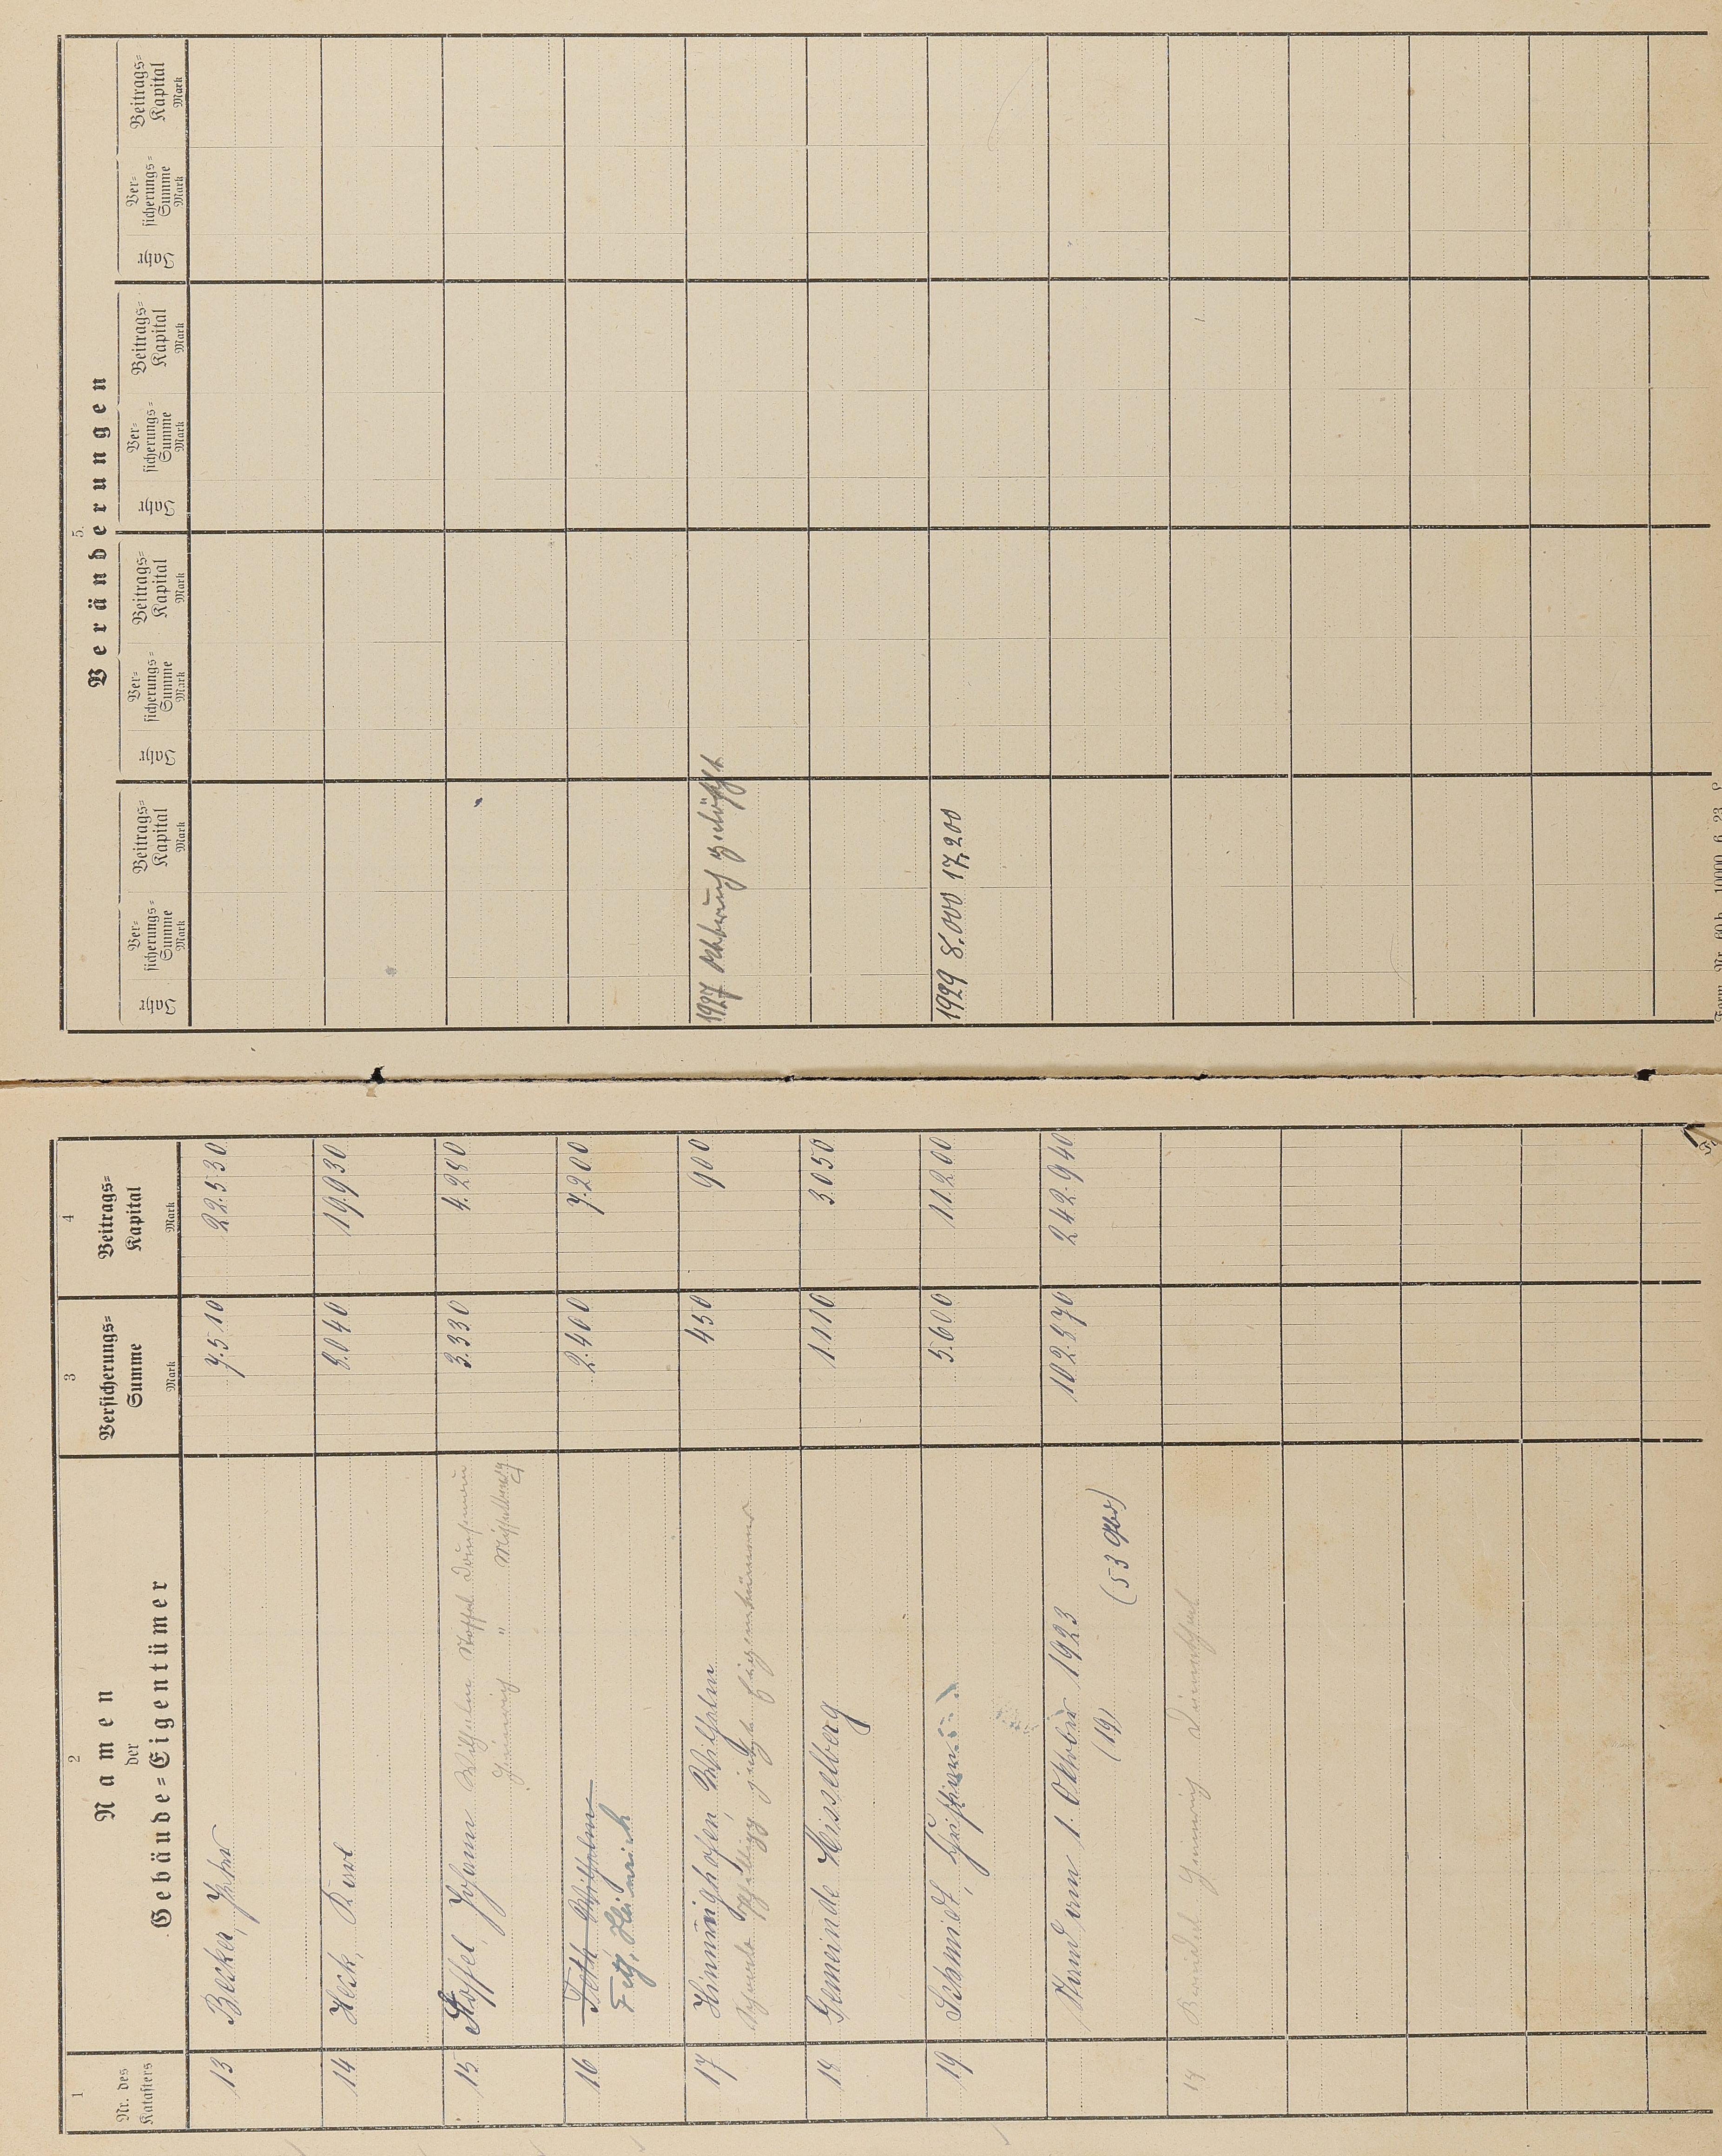 1
Nr. des
Katasters
2
Namen
der
Gebäude=Eigentümer
3
Versicherungs=
Summe
Mark
4
Beitrags=
Kapital
Mark
13 Becker, Peter 7.510 22.530
14 Heck, Karl 8.040 19.930
15 Stoffel, Johann Wilhelm Stoffel 3.330 4.280
Heinrich " Misselberg
16 Feth Wilhelm 2.400 7.200
Feth, Heinrich
17 Hinnighofen, Wilhelm 450 900
jetzt Eigentümer
18 Gemeinde Misselberg 1.110 3.050
19 Schmidt, 5.600 11.200
Stand am 1. Oktober 1923 102.870 242.940
(19) (53 Gbd)
18 Heinrich
5.
Veränderungen
Jahr
Ver=
sicherungs=
Summe
Mark
Beitrags=
Kapital
Mark
Jahr
Ver=
sicherungs=
Summe
Mark
Beitrags=
Kapital
Mark
Jahr
Ver=
sicherungs=
Summe
Mark
Beitrags=
Kapital
Mark
Jahr
Ver=
sicherungs=
Summe
Mark
Beitrags=
Kapital
Mark
1927 Abbruch gelöscht
1929 8.000 17.200
Form. Nr. 60b. 10000. 6. 23.